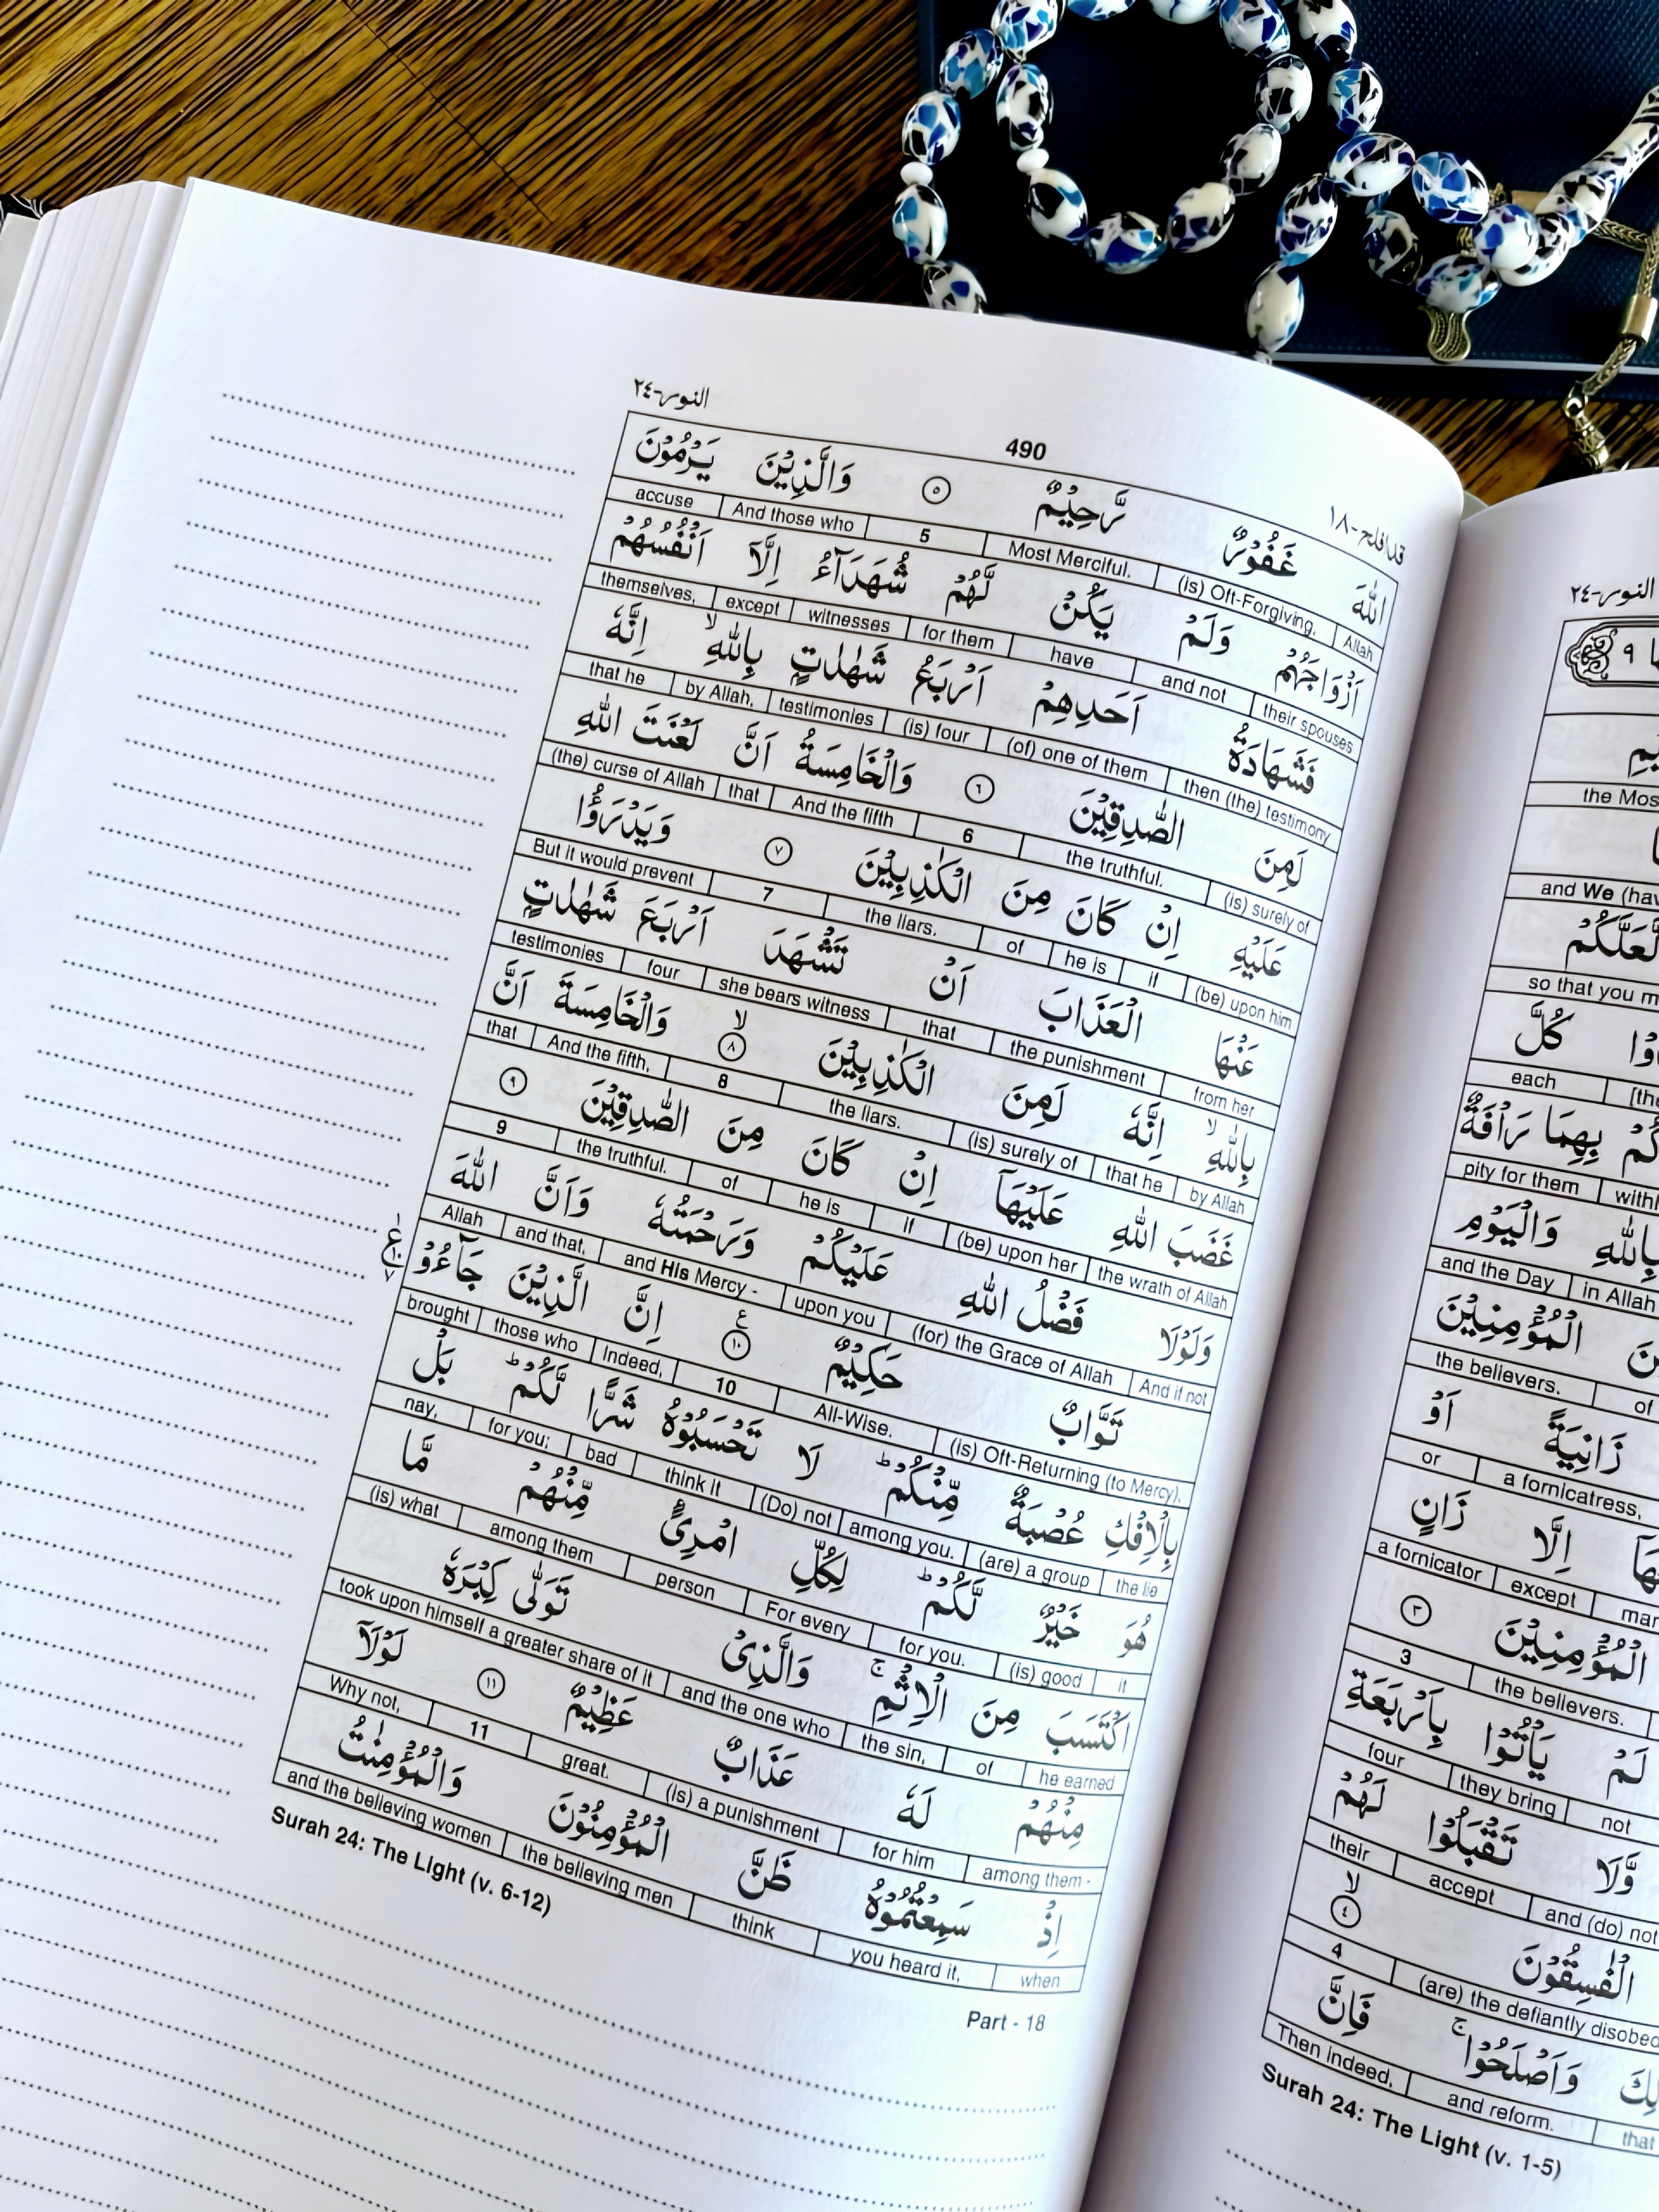 قدافلح-١٨ 490 النور-٢٤
اللّٰهَ غَفُوْرٌ رَّحِيْمٌ ٥ وَالَّذِيْنَ يَرْمُوْنَ
Allah (is) Oft-Forgiving, Most Merciful. 5 And those who accuse
اَزْوَاجَهُمْ وَلَمْ يَكُنْ لَّهُمْ شُهَدَآءُ اِلَّآ اَنْفُسُهُمْ
their spouses and not have for them witnesses except themselves,
فَشَهَادَةُ اَحَدِهِمْ اَرْبَعُ شَهٰدٰتٍ بِاللّٰهِ ۙ اِنَّهٗ
then (the) testimony (of) one of them (is) four testimonies by Allah, that he
لَمِنَ الصّٰدِقِيْنَ ٦ وَالْخَامِسَةُ اَنَّ لَعْنَتَ اللّٰهِ
(is) surely of the truthful. 6 And the fifth that (the) curse of Allah
عَلَيْهِ اِنْ كَانَ مِنَ الْكٰذِبِيْنَ ٧ وَيَدْرَؤُا
(be) upon him if he is of the liars. 7 But it would prevent
عَنْهَا الْعَذَابَ اَنْ تَشْهَدَ اَرْبَعَ شَهٰدٰتٍ
from her the punishment that she bears witness four testimonies
بِاللّٰهِ ۙ اِنَّهٗ لَمِنَ الْكٰذِبِيْنَ ۙ ٨ وَالْخَامِسَةَ اَنَّ
by Allah that he (is) surely of the liars. 8 And the fifth, that
غَضَبَ اللّٰهِ عَلَيْهَآ اِنْ كَانَ مِنَ الصّٰدِقِيْنَ ٩
the wrath of Allah (be) upon her if he is of the truthful. 9
وَلَوْلَا فَضْلُ اللّٰهِ عَلَيْكُمْ وَرَحْمَتُهٗ وَاَنَّ اللّٰهَ
And if not (for) the Grace of Allah upon you and His Mercy - and that, Allah
تَوَّابٌ حَكِيْمٌ ١٠ ع اِنَّ الَّذِيْنَ جَآءُوْ
(is) Oft-Returning (to Mercy), All-Wise. 10 Indeed, those who brought
بِالْاِفْكِ عُصْبَةٌ مِّنْكُمْ ؕ لَا تَحْسَبُوْهُ شَرًّا لَّكُمْ ؕ بَلْ
the lie (are) a group among you. (Do) not think it bad for you; nay,
هُوَ خَيْرٌ لَّكُمْ ؕ لِكُلِّ امْرِئٍ مِّنْهُمْ مَّا
it (is) good for you. For every person among them (is) what
اكْتَسَبَ مِنَ الْاِثْمِ ۚ وَالَّذِيْ تَوَلّٰى كِبْرَهٗ
he earned of the sin, and the one who took upon himself a greater share of it
مِنْهُمْ لَهٗ عَذَابٌ عَظِيْمٌ ١١ لَوْلَآ
among them - for him (is) a punishment great. 11 Why not,
اِذْ سَمِعْتُمُوْهُ ظَنَّ الْمُؤْمِنُوْنَ وَالْمُؤْمِنٰتُ
when you heard it, think the believing men and the believing women
Surah 24: The Light (v. 6-12) Part - 18
النور-٢٤
٩
the Mos
and We (hav
لَّعَلَّكُمْ
so that you m
كُلَّ
each
بِهِمَا رَاْفَةٌ
pity for them
بِاللّٰهِ وَالْيَوْمِ
in Allah and the Day
الْمُؤْمِنِيْنَ
of the believers.
زَانِيَةً اَوْ
a fornicatress, or
اِلَّا زَانٍ
mar except a fornicator
الْمُؤْمِنِيْنَ ٣
the believers. 3
لَمْ يَاْتُوْا بِاَرْبَعَةِ
not they bring four
وَّلَا تَقْبَلُوْا لَهُمْ
and (do) not accept their
الْفٰسِقُوْنَ ۙ ٤
(are) the defiantly disobed 4
وَاَصْلَحُوْا ۚ فَاِنَّ
that and reform. Then indeed,
Surah 24: The Light (v. 1-5)